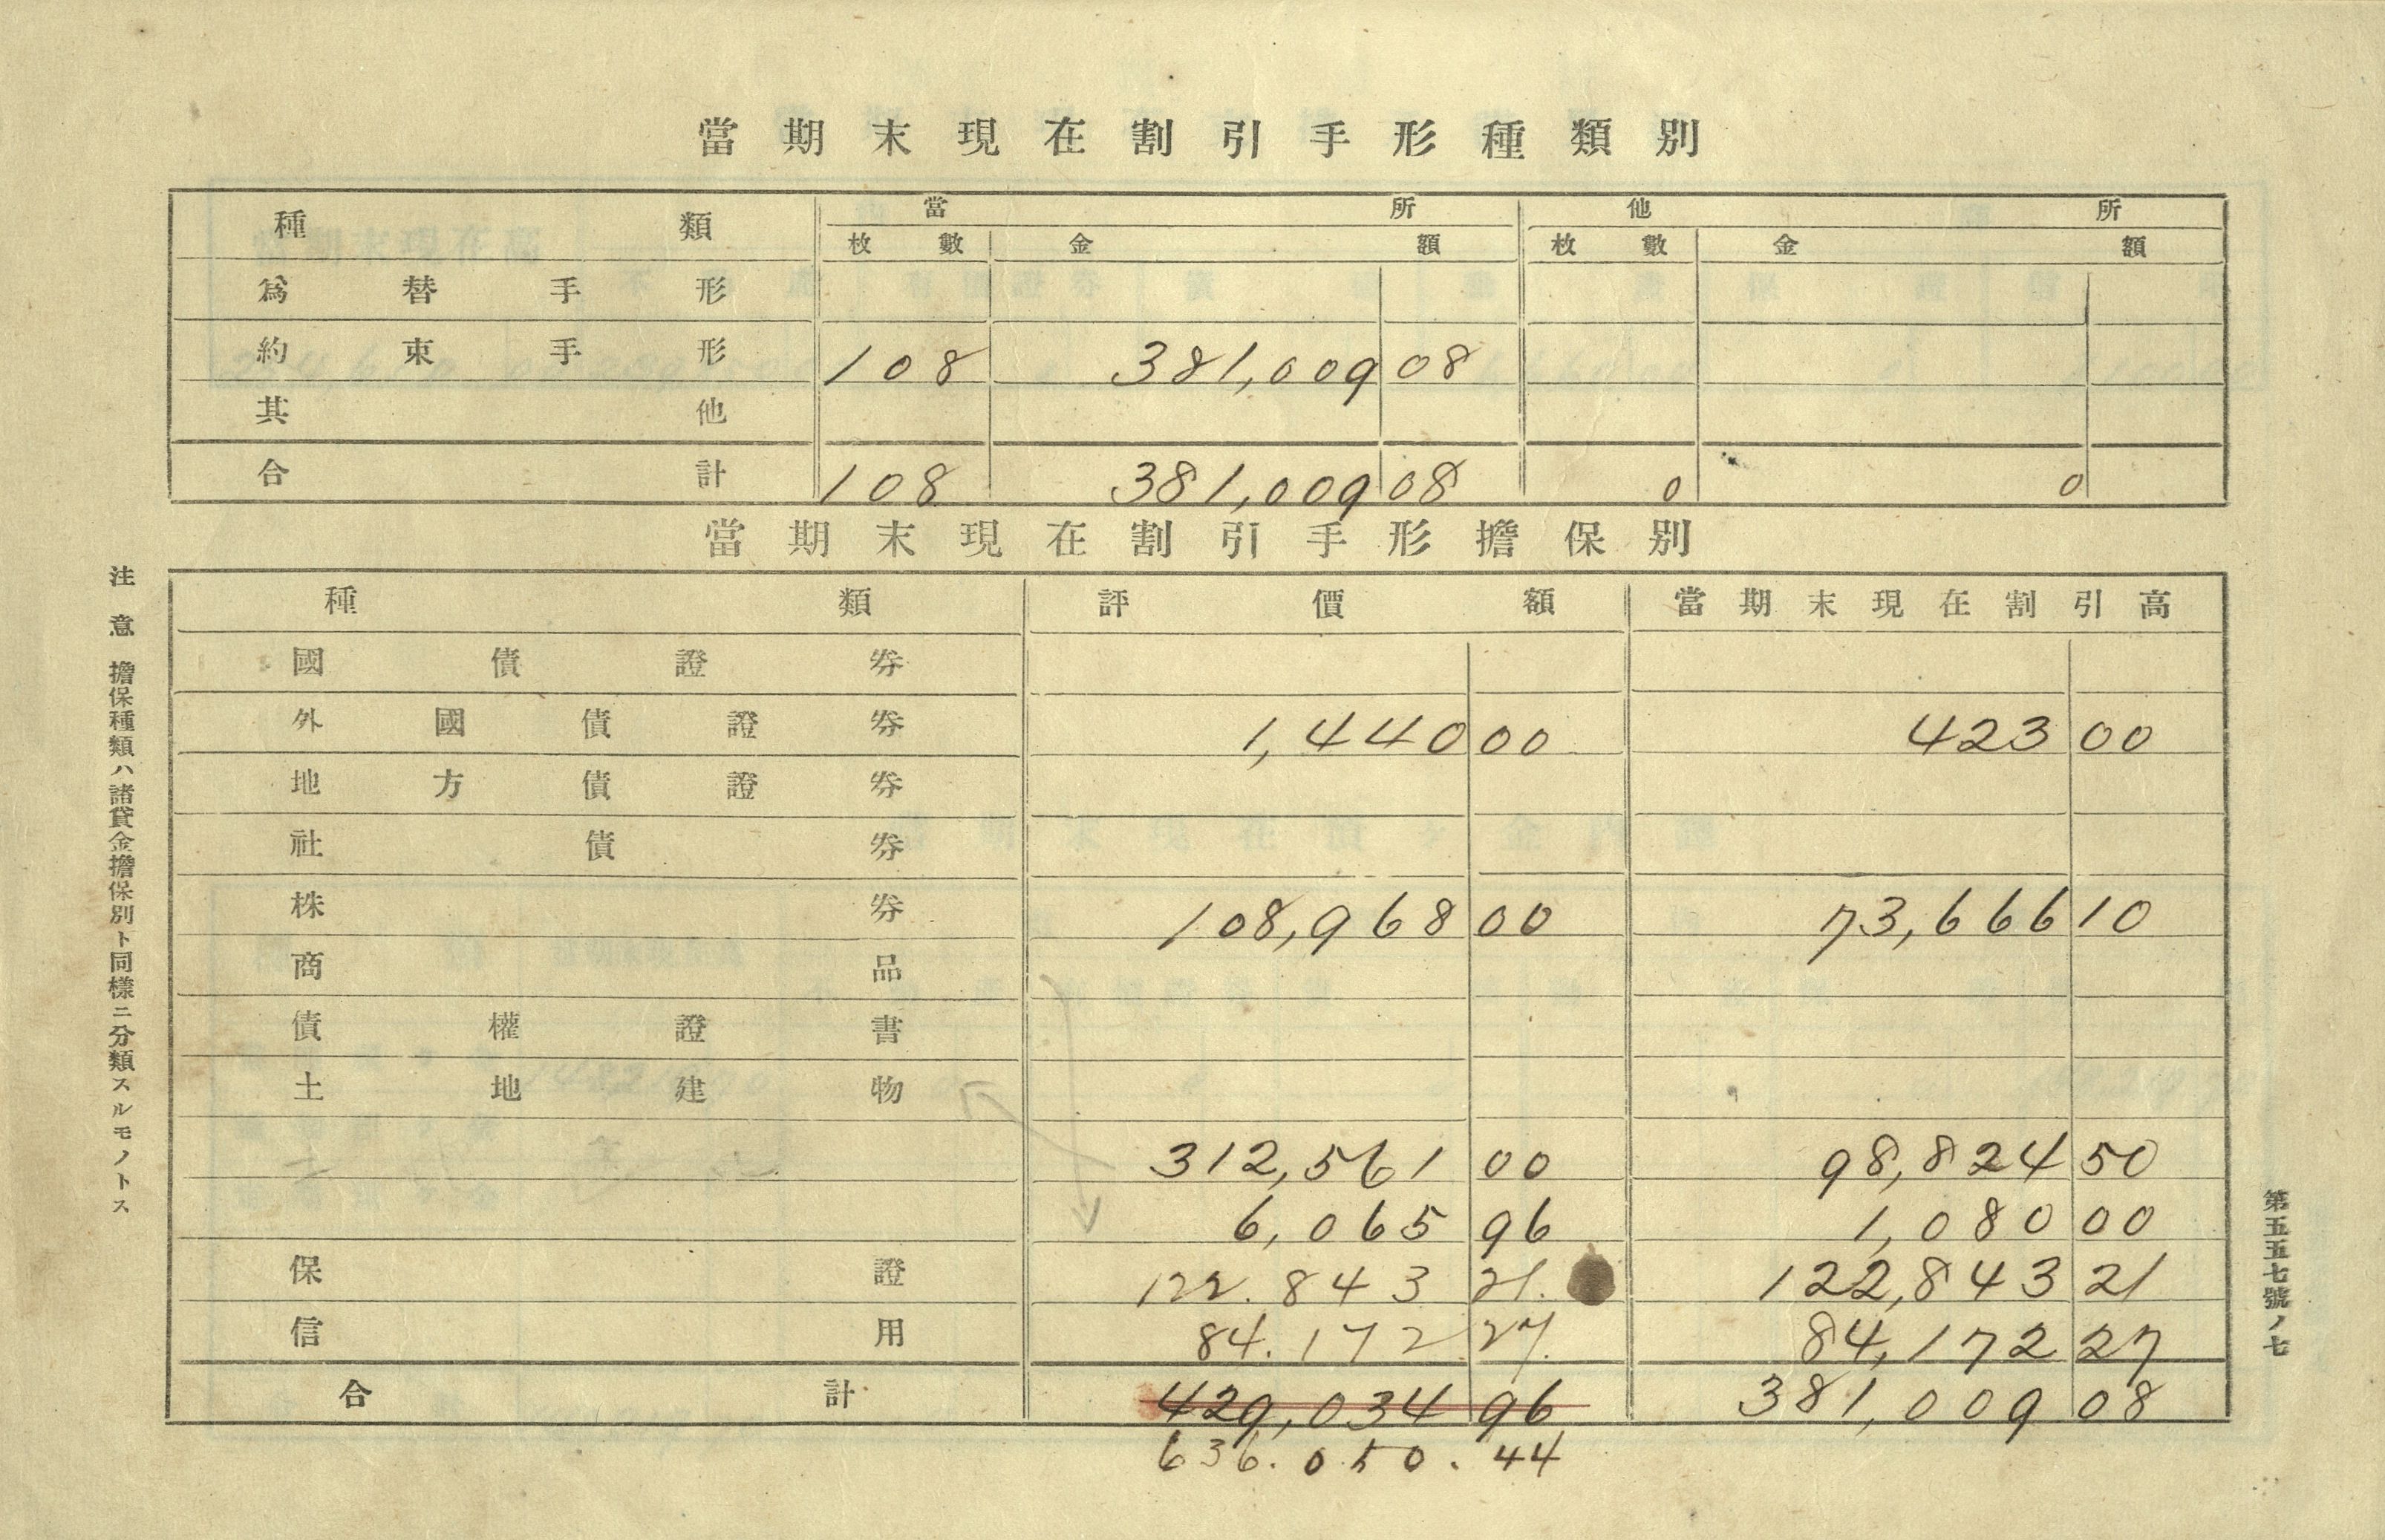 當期末現在割引手形種類別
種類 當所 他所
枚數 金額 枚數 金額
爲替手形
約束手形 108 381,009 08
其他
合計 108 381,009 08 0 0
當期末現在割引手形擔保別
種類 評價額 當期末現在割引高
國債證券
外國債證券 1,440 00 423 00
地方債證券
社債券
株券 108,968 00 73,666 10
商品
債權證書
土地建物
312,561 00 98,824 50
6,065 96 1,080 00
保證 122.843 21. 122,843 21
信用 84.172 27. 84,172 27
合計 429,034 96 381,009 08
636.050.44
注意 擔保種類ハ諸貸金擔保別ト同樣ニ分類スルモノトス
第五五七號ノ七